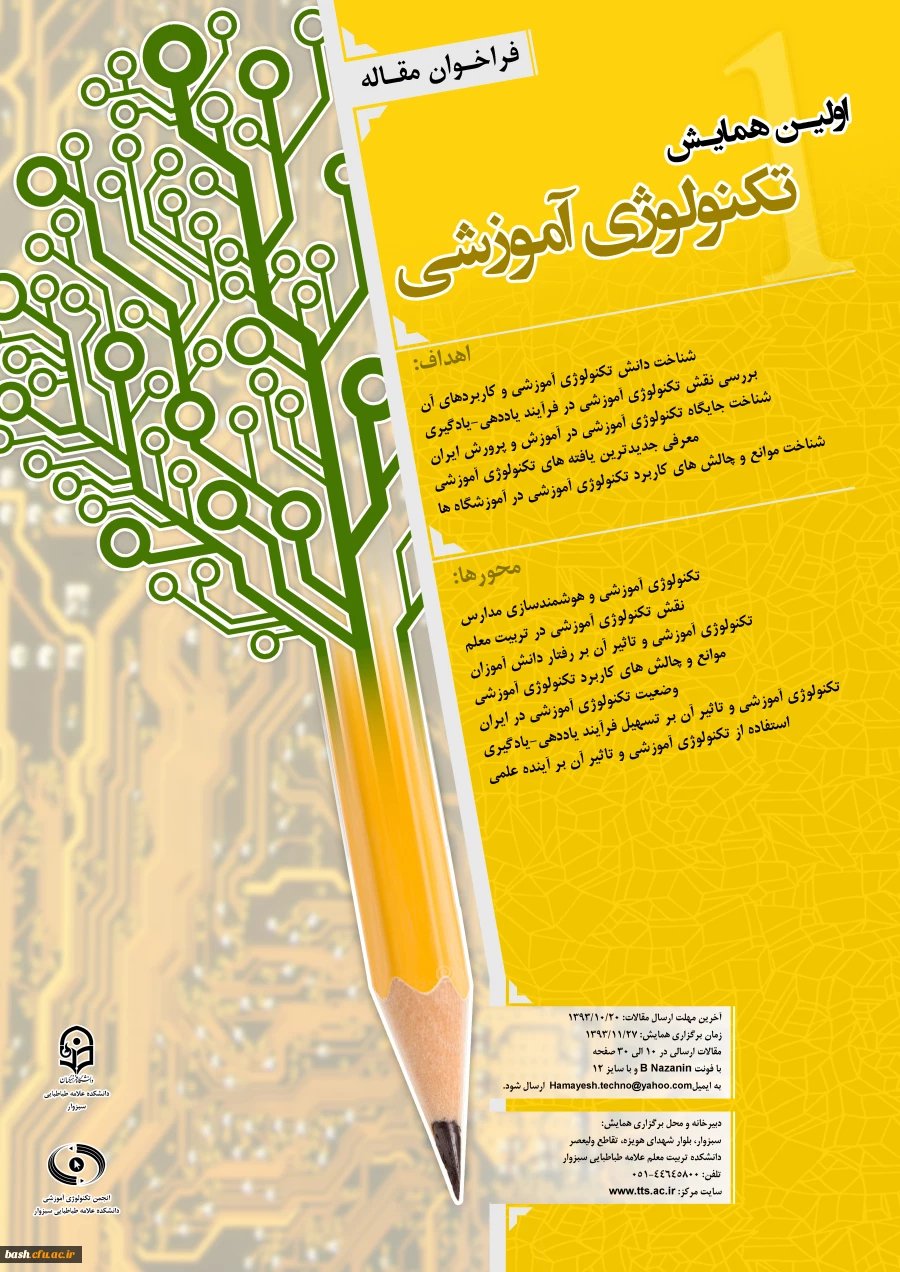 فراخوان مقاله
1
اولین همایش
تکنولوژی آموزشی
اهداف:
شناخت دانش تکنولوژی آموزشی و کاربردهای آن
بررسی نقش تکنولوژی آموزشی در فرآیند یاددهی-یادگیری
شناخت جایگاه تکنولوژی آموزشی در آموزش و پرورش ایران
معرفی جدیدترین یافته های تکنولوژی آموزشی
شناخت موانع و چالش های کاربرد تکنولوژی آموزشی در آموزشگاه ها
محورها:
تکنولوژی آموزشی و هوشمندسازی مدارس
نقش تکنولوژی آموزشی در تربیت معلم
تکنولوژی آموزشی و تاثیر آن بر رفتار دانش آموزان
موانع و چالش های کاربرد تکنولوژی آموزشی
وضعیت تکنولوژی آموزشی در ایران
تکنولوژی آموزشی و تاثیر آن بر تسهیل فرآیند یاددهی-یادگیری
استفاده از تکنولوژی آموزشی و تاثیر آن بر آینده علمی
آخرین مهلت ارسال مقالات: ۱۳۹۳/۱۰/۲۰
زمان برگزاری همایش: ۱۳۹۳/۱۱/۲۷
مقالات ارسالی در ۱۰ الی ۳۰ صفحه
با فونت B Nazanin و با سایز ۱۲
به ایمیل Hamayesh.techno@yahoo.com ارسال شود.
دبیرخانه و محل برگزاری همایش:
سبزوار، بلوار شهدای هویزه، تقاطع ولیعصر
دانشکده تربیت معلم علامه طباطبایی سبزوار
تلفن: ۴۴۶۴۵۸۰۰-۰۵۱
سایت مرکز: www.tts.ac.ir
دانشگاه فرهنگیان
دانشکده علامه طباطبایی
سبزوار
انجمن تکنولوژی آموزشی
دانشکده علامه طباطبایی سبزوار
bash.cfu.ac.ir